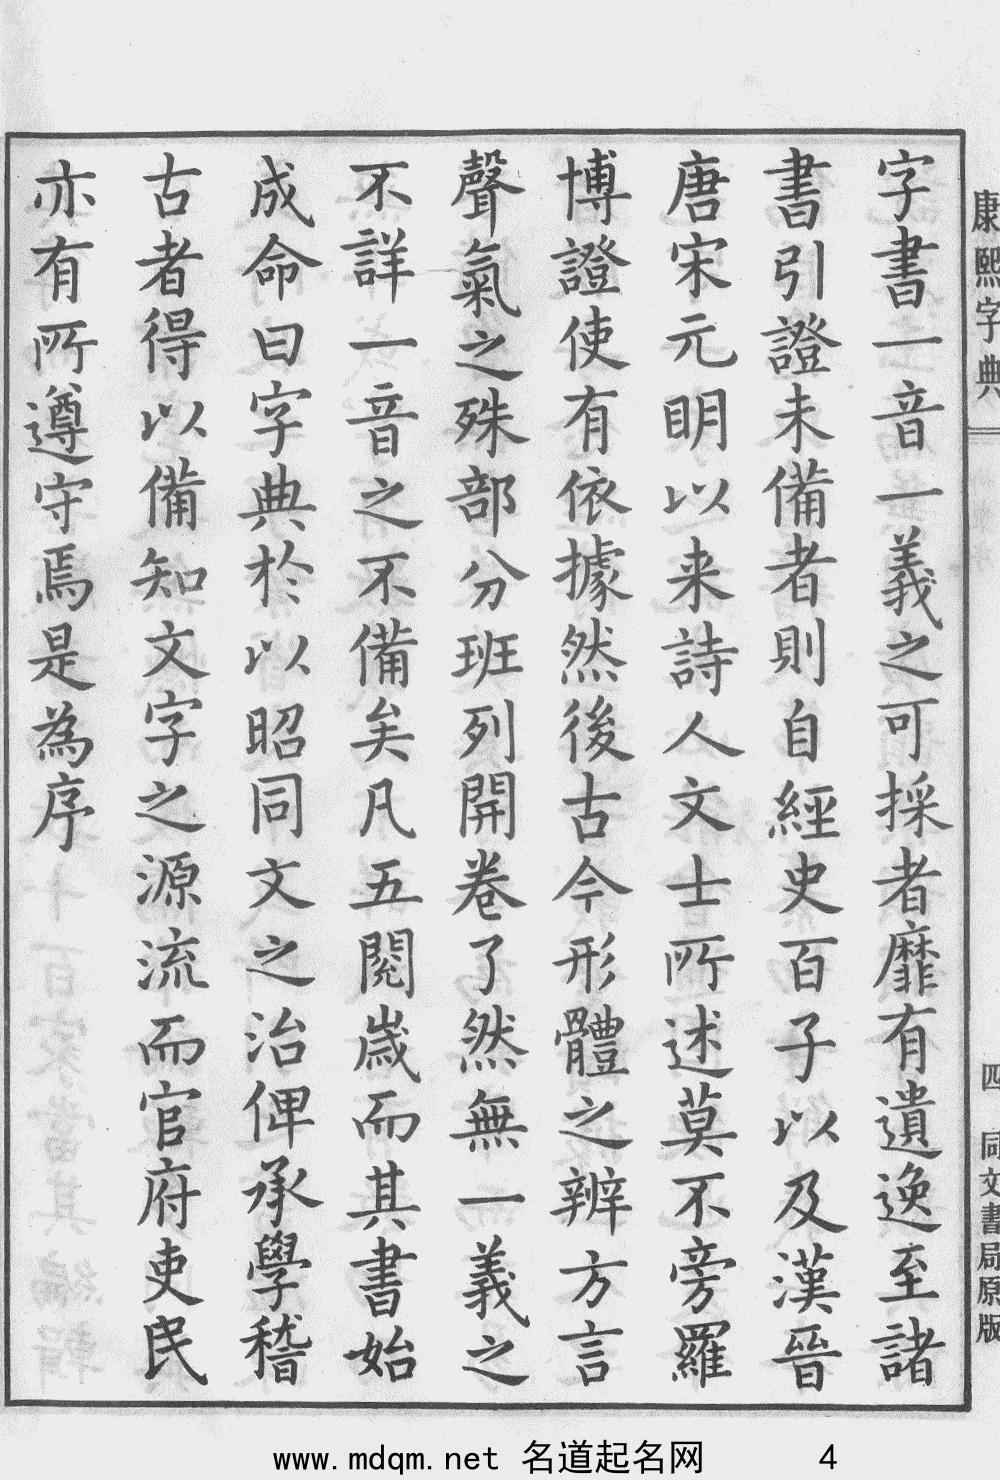 康熙字典
四
同文書局原版
字書一音一義之可採者靡有遺逸至諸
書引證未備者則自經史百子以及漢晉
唐宋元明以来詩人文士所述莫不旁羅
博證使有依據然後古今形體之辨方言
聲氣之殊部分班列開卷了然無一義之
不詳一音之不備矣凡五閱歲而其書始
成命曰字典於以昭同文之治俾承學稽
古者得以備知文字之源流而官府吏民
亦有所遵守焉是為序
www.mdqm.net 名道起名网 4